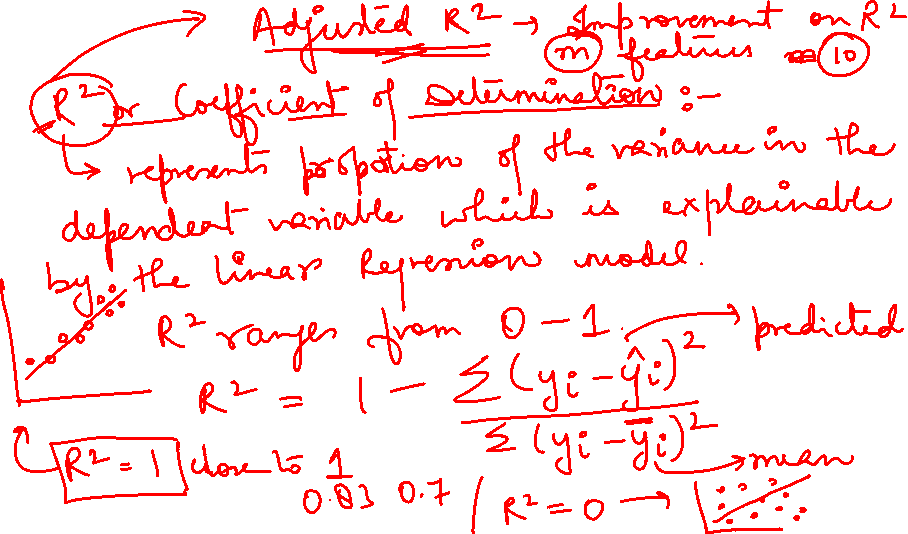 Adjusted R² → Improvement on R²
m features = 10
R² or Coefficient of Determination :-
↳ represents propotion of the variance in the
dependent variable which is explainable
by the linear Regression model.
R² ranges from 0 - 1.
predicted
R² = 1 - Σ(yi - ŷi)² / Σ(yi - ȳi)²
mean
R² = 1 close to 1
0.83 0.7
R² = 0 →